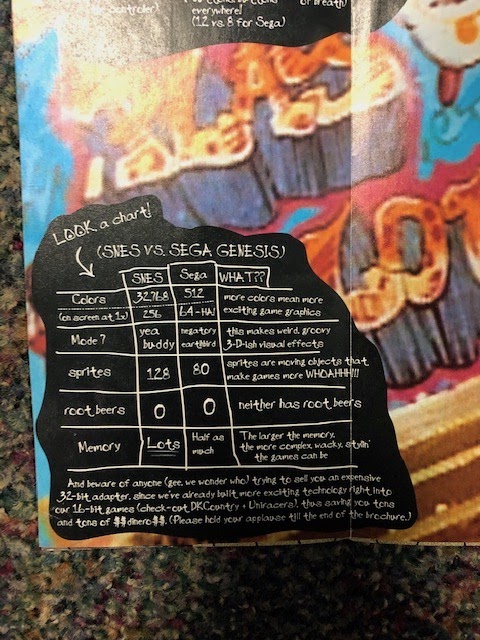 controler)
everywhere!
(12 vs. 8 for Sega)
or breath)
LOOK, a chart!
(SNES VS. SEGA GENESIS)
SNES Sega WHAT??
Colors 32,768 512 more colors mean more
(on screen at 1x) 256 64-HA! exciting game graphics
Mode 7 yea negatory this makes weird, groovy
buddy earthbird 3-D-ish visual effects
sprites 128 80 sprites are moving objects that
make games more WHOAHH!!!
root beers 0 0 neither has root beers
Memory Lots Half as The larger the memory,
much the more complex, wacky, stylin'
the games can be
And beware of anyone (gee, we wonder who) trying to sell you an expensive
32-bit adapter, since we've already built more exciting technology right into
our 16-bit games (check-out DKCountry + Uniracers), thus saving you tons
and tons of $$dinero$$. (Please hold your applause till the end of the brochure.)